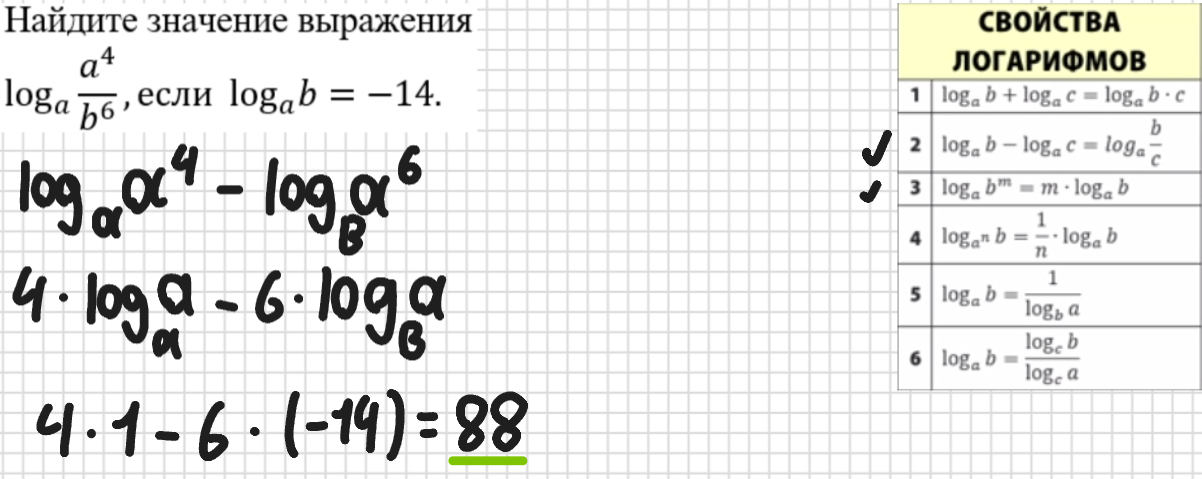 Найдите значение выражения
logₐ a⁴/b⁶, если logₐb = −14.
logₐ a⁴ - log_в a⁶
4 · logₐ a - 6 · log_в a
4 · 1 - 6 · (-14) = 88
СВОЙСТВА
ЛОГАРИФМОВ
1 logₐ b + logₐ c = logₐ b · c
✓ 2 logₐ b − logₐ c = logₐ b/c
✓ 3 logₐ bᵐ = m · logₐ b
4 log_aⁿ b = 1/n · logₐ b
5 logₐ b = 1/log_b a
6 logₐ b = log_c b/log_c a